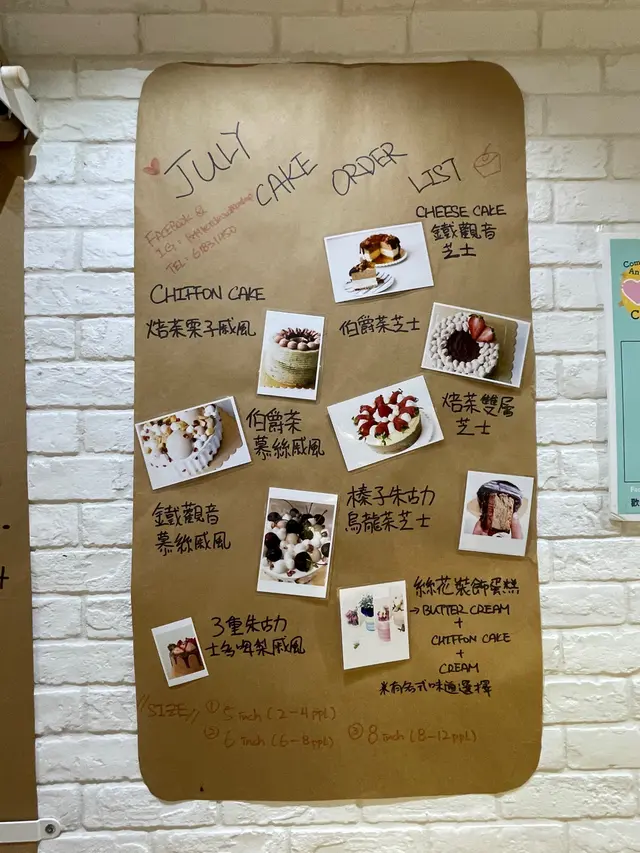 JULY CAKE ORDER LIST
FACEBOOK &
I.G:
TEL:
CHEESE CAKE
鐵觀音
芝士
CHIFFON CAKE
焙茶栗子戚風
伯爵茶芝士
伯爵茶
慕絲戚風
焙茶雙層
芝士
鐵觀音
慕絲戚風
榛子朱古力
烏龍茶芝士
3重朱古力
士多啤梨戚風
絲花裝飾蛋糕
→ BUTTER CREAM
+
CHIFFON CAKE
+
CREAM
米有各式味道選擇
//SIZE// ① 5 inch (2-4 ppl)
② 6 inch (6-8 ppl) ③ 8 inch (8-12 ppl)
Com
An
C
歡